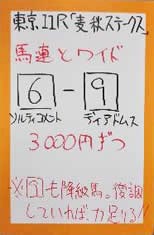 東京11R「麦秋ステークス」
馬連とワイド
6-9
ソルティコメント ディアドムス
3000円ずつ
※9も降級馬。復調
していれば、力足りる!!